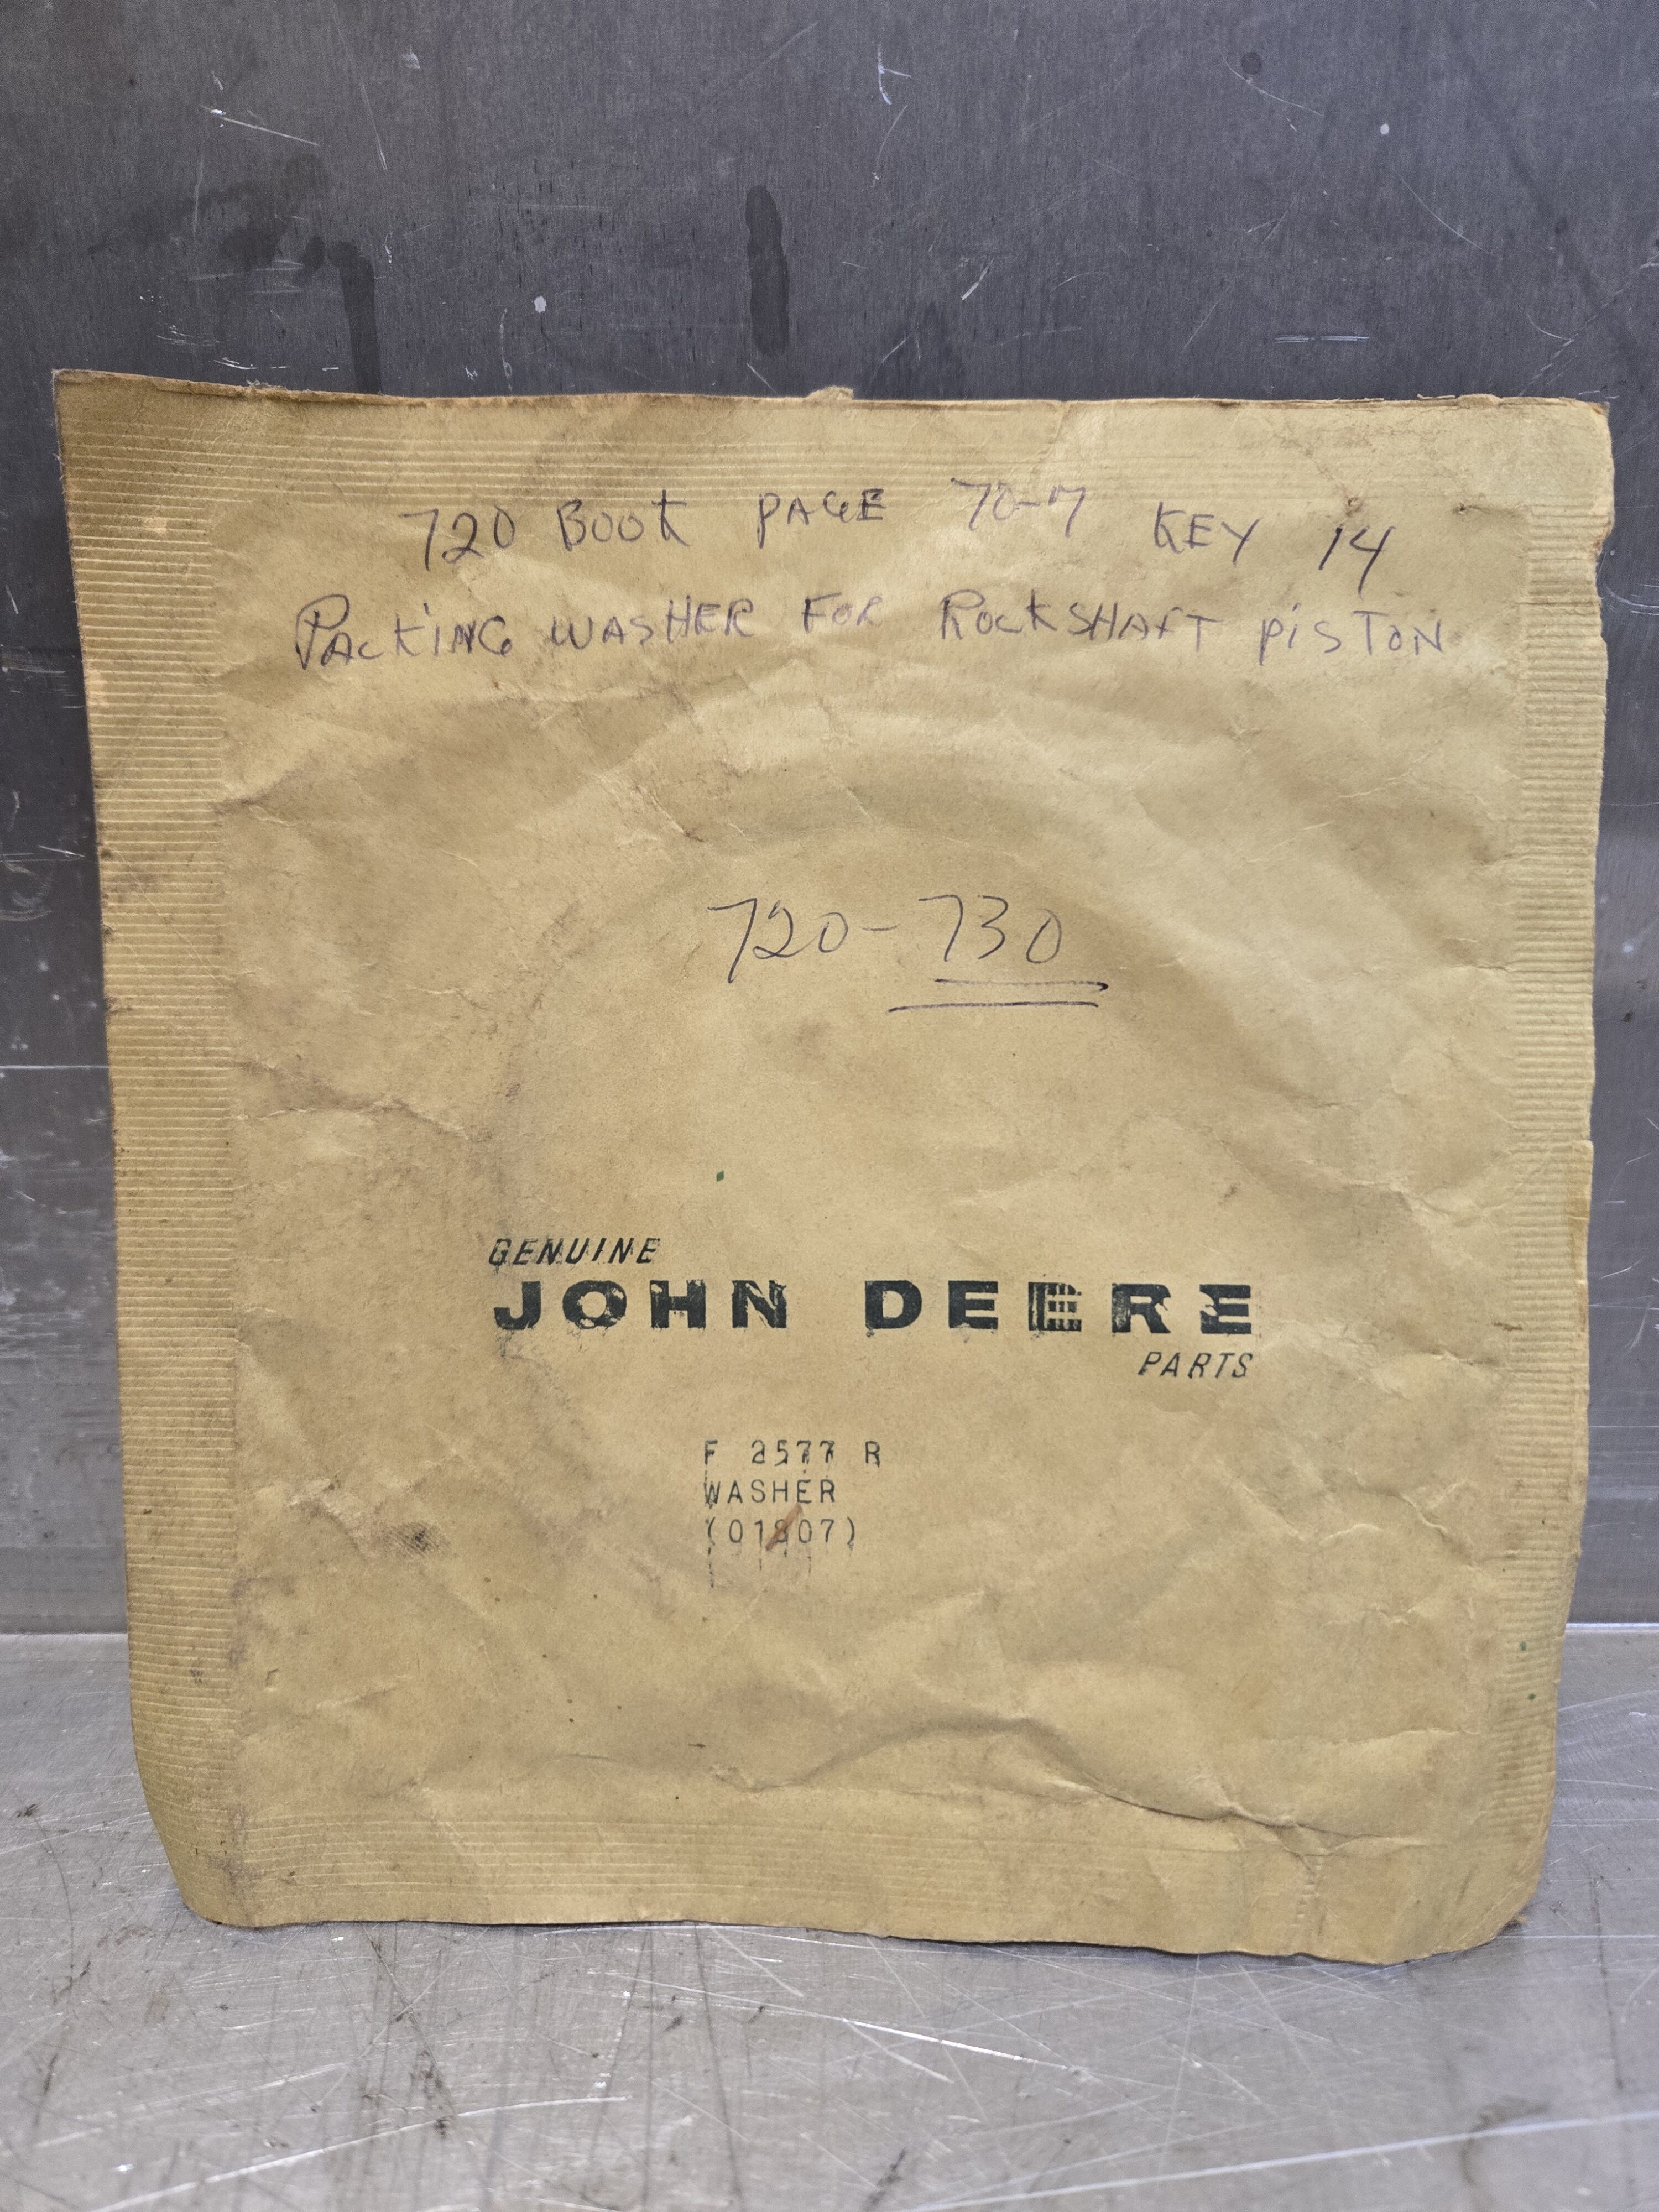 720 BOOK PAGE 70-7 KEY 14
PACKiNG WASHER FOR ROCKSHAFT PiSTON
720-730
GENUINE
JOHN DEERE
PARTS
F 2577 R
WASHER
(01807)